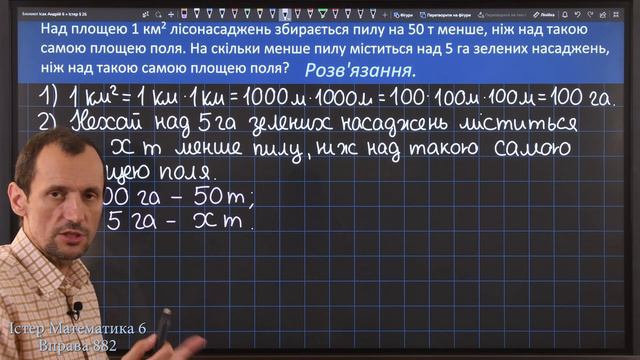 Блокнот Ісак Андрій 6 » Істер § 26
Фігури
Перетворити на фігури
Перетворити на текст
Лінійка
Над площею 1 км² лісонасаджень збирається пилу на 50 т менше, ніж над такою
самою площею поля. На скільки менше пилу міститься над 5 га зелених насаджень,
ніж над такою самою площею поля?
Розв'язання.
1) 1 км² = 1 км · 1 км = 1000 м · 1000 м = 100 · 100 м · 100 м = 100 га.
2) Нехай над 5 га зелених насаджень міститься
х т менше пилу, ніж над такою самою
щею поля.
00 га – 50 т;
5 га – х т.
Істер Математика 6
Вправа 882